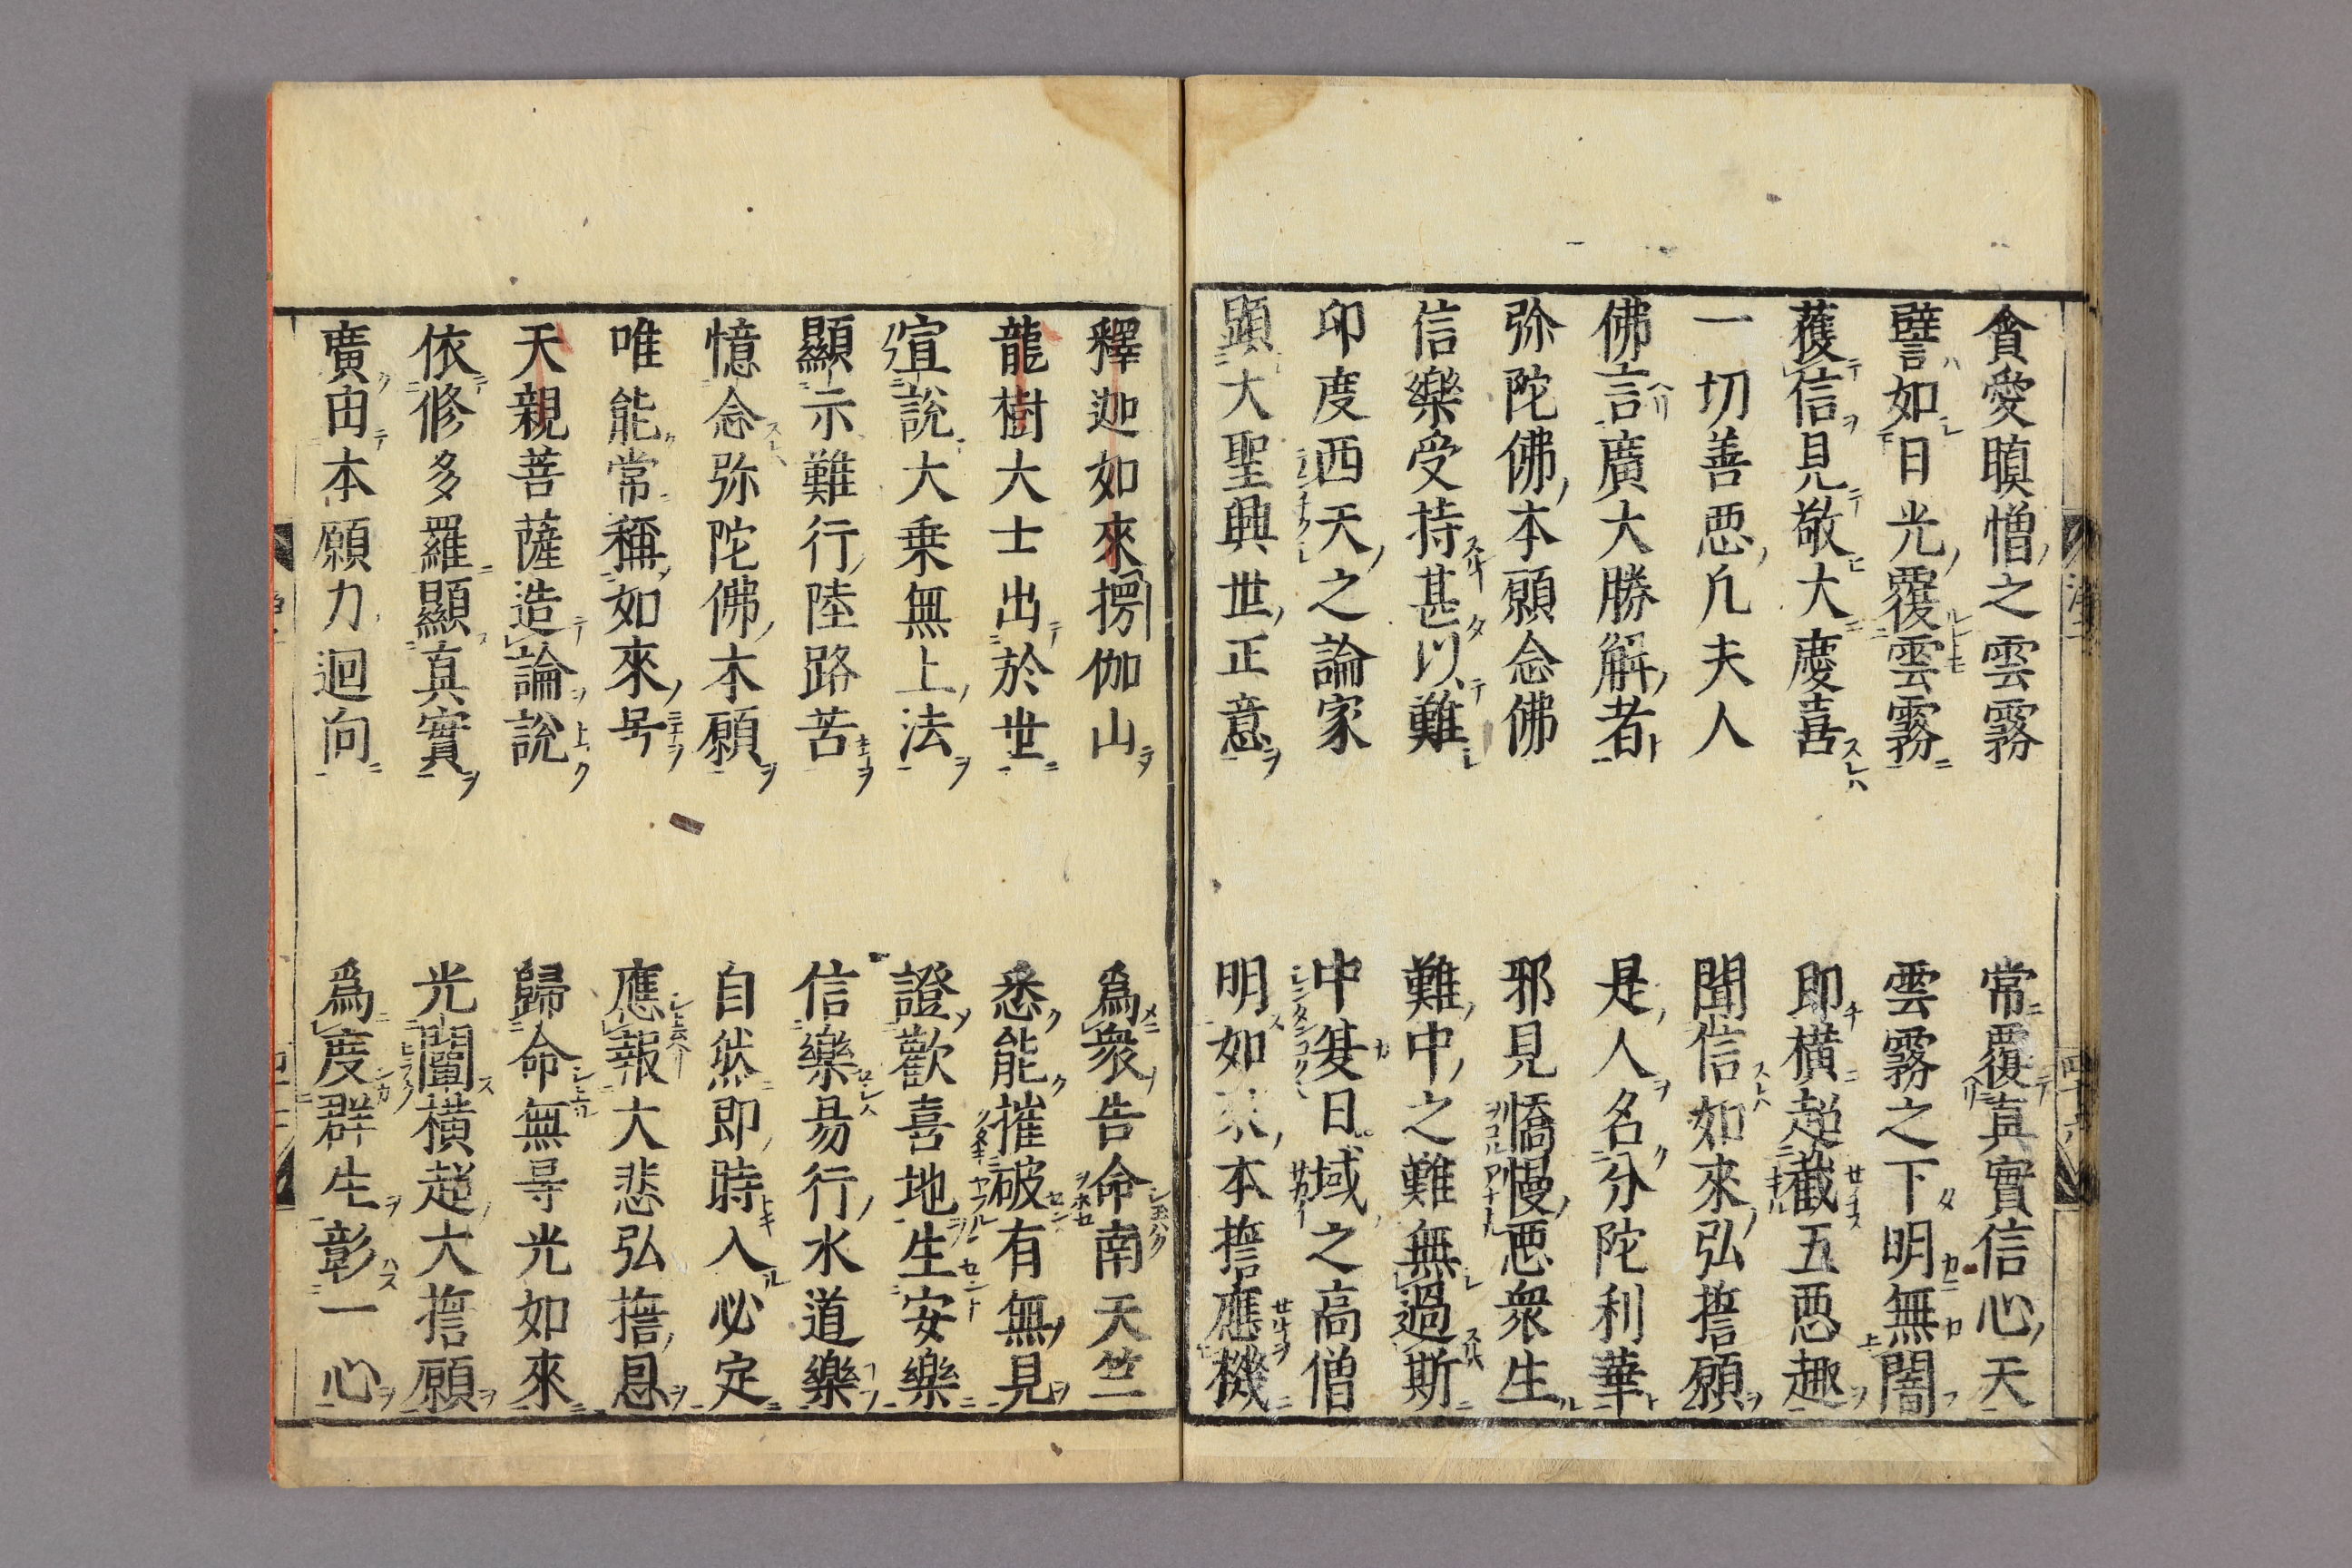 貪愛瞋憎之雲霧 常覆真實信心天
譬如日光覆雲霧 雲霧之下明無闇
獲信見敬大慶喜 即橫超截五惡趣
一切善惡凡夫人 聞信如來弘誓願
佛言廣大勝解者 是人名分陀利華
弥陀佛本願念佛 邪見憍慢惡衆生
信樂受持甚以難 難中之難無過斯
印度西天之論家 中夏日域之高僧
顯大聖興世正意 明如來本誓應機
釋迦如來楞伽山 爲衆告命南天竺
龍樹大士出於世 悉能摧破有無見
宣說大乗無上法 證歡喜地生安樂
顯示難行陸路苦 信樂易行水道樂
憶念弥陀佛本願 自然即時入必定
唯能常稱如來号 應報大悲弘誓恩
天親菩薩造論說 歸命無㝵光如來
依修多羅顯真實 光闡橫超大誓願
廣由本願力迴向 爲度群生彰一心